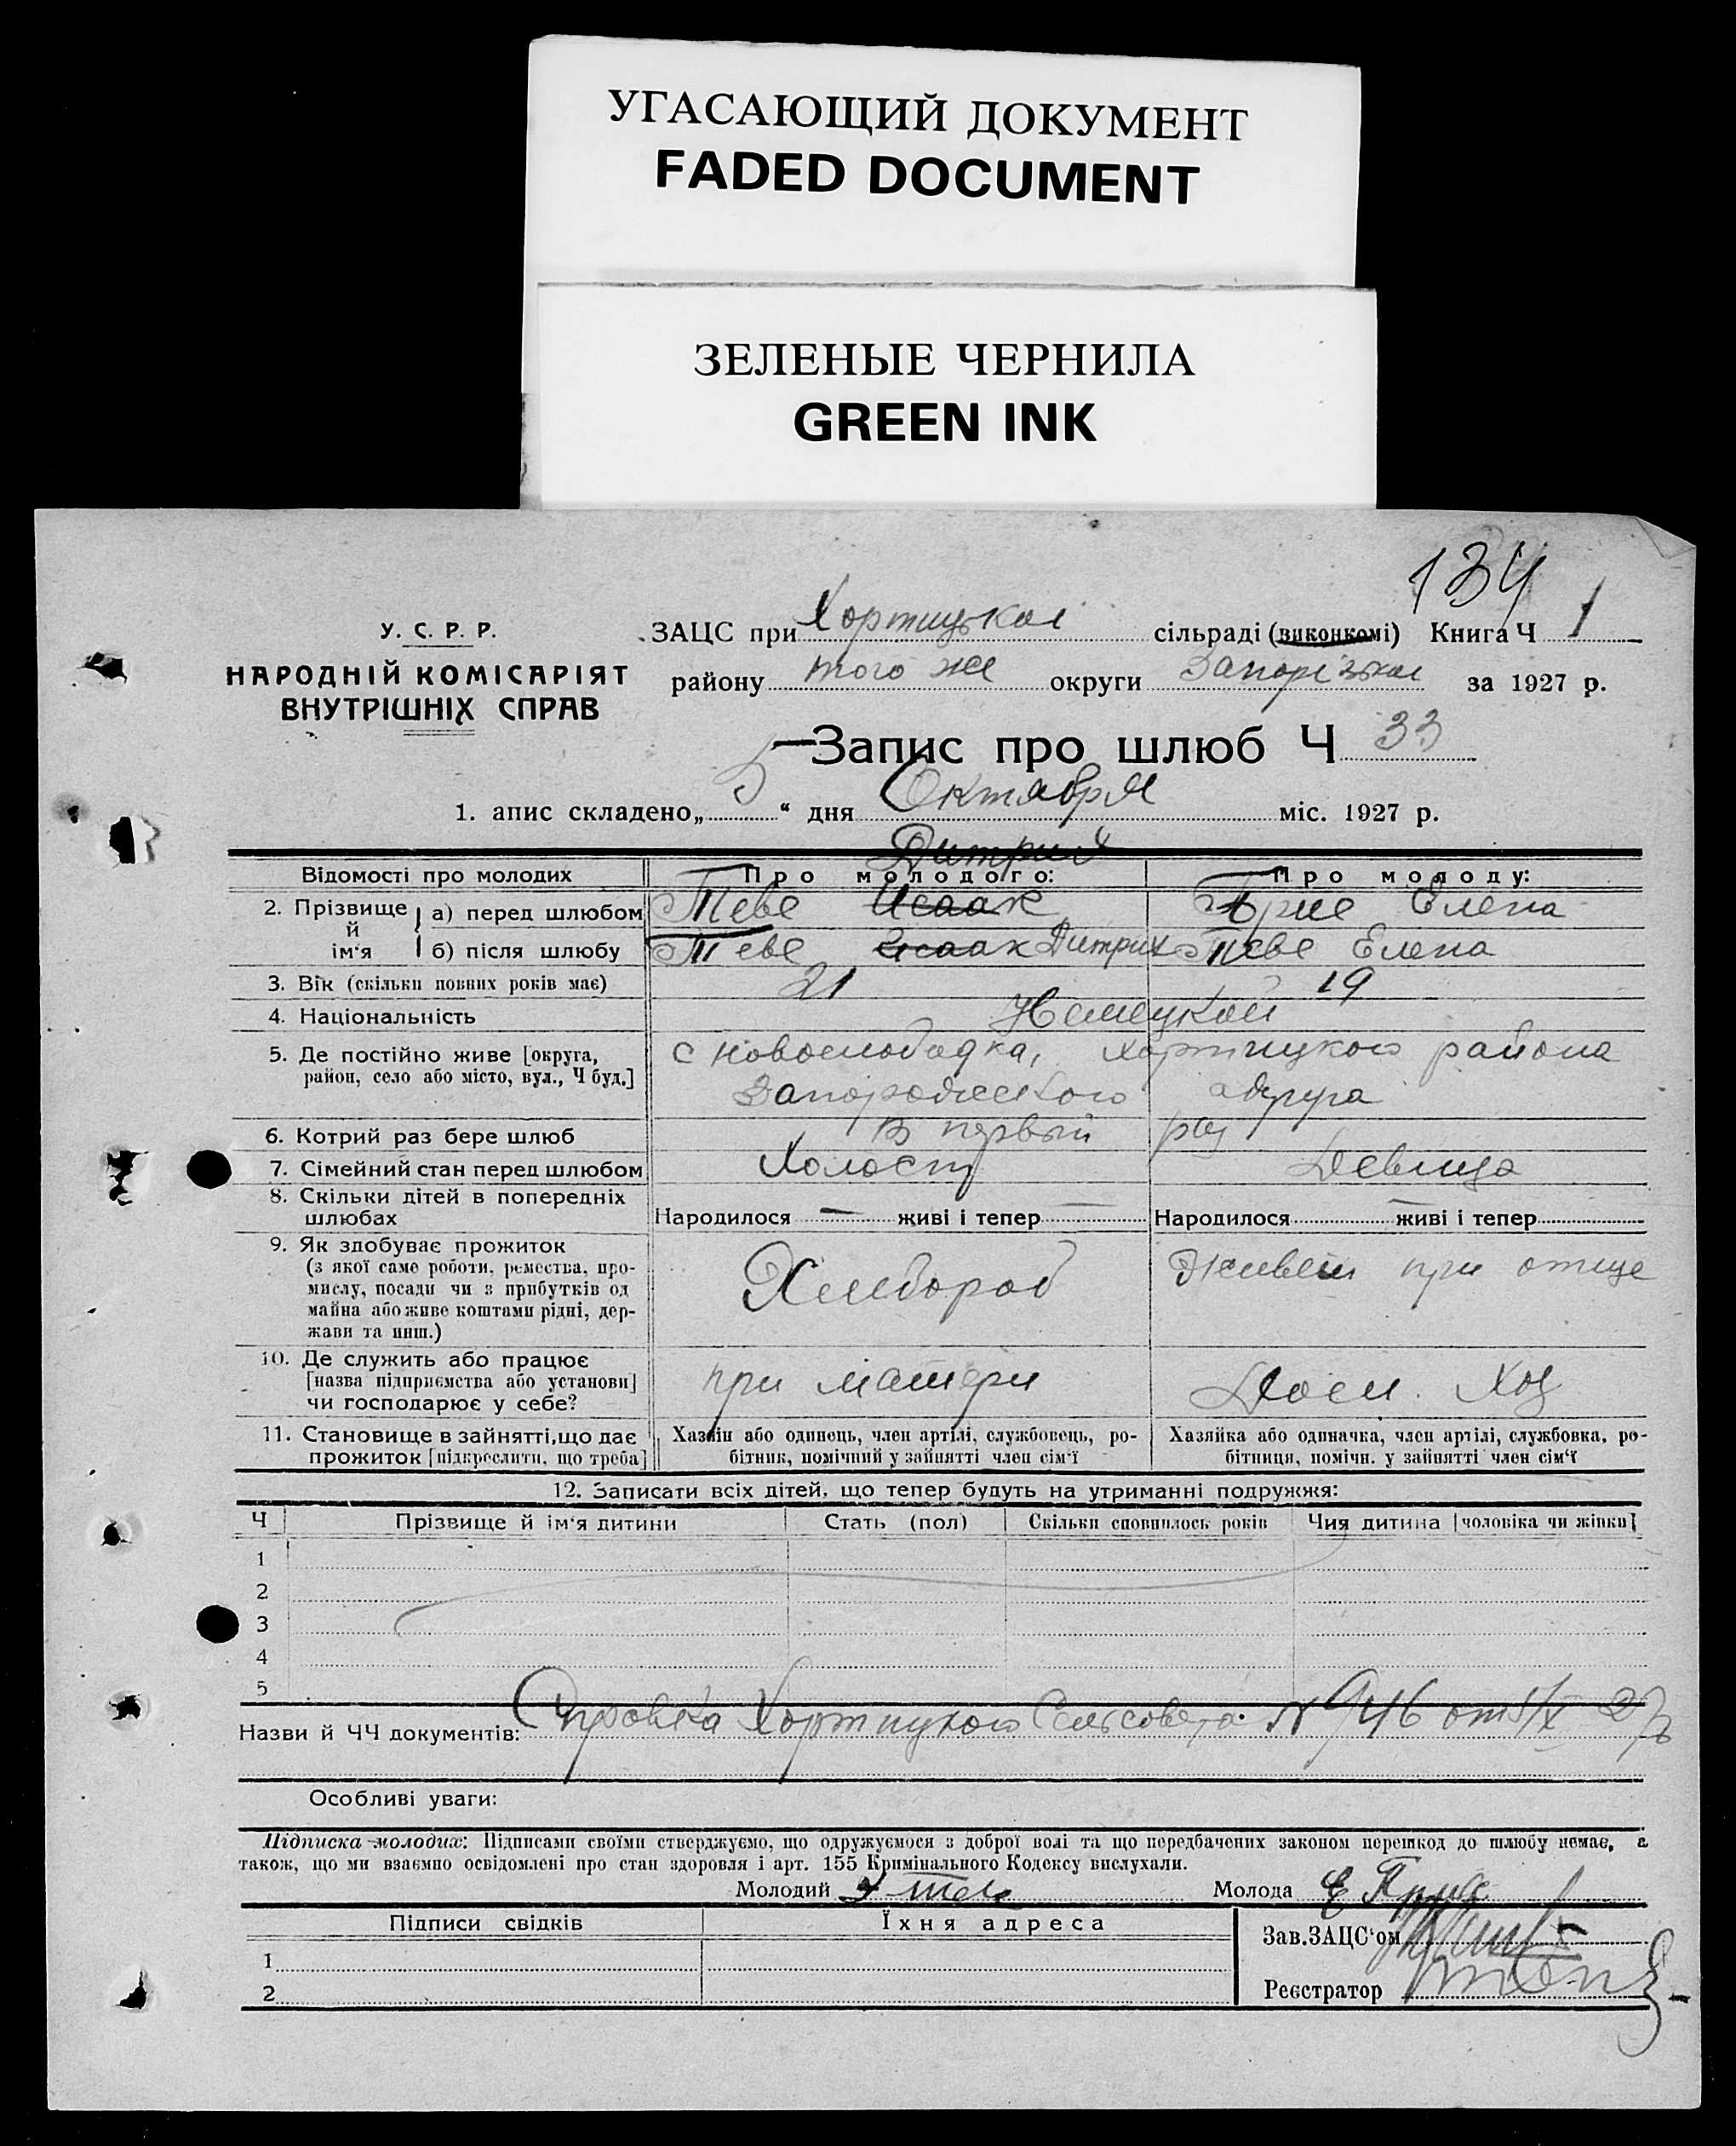 УГАСАЮЩИЙ ДОКУМЕНТ
FADED DOCUMENT
ЗЕЛЕНЫЕ ЧЕРНИЛА
GREEN INK
134
У. С. Р. Р.
НАРОДНІЙ КОМІСАРІЯТ
ВНУТРІШНІХ СПРАВ
ЗАЦС при Хортицькой сільраді (виконкомі) Книга Ч 1
району того же округи Запорізькой за 1927 р.
Запис про шлюб Ч 33
1. апис складено „ 5 “ дня Октября міс. 1927 р.
Дитрих
Відомості про молодих Про молодого: Про молоду:
2. Прізвище й ім'я а) перед шлюбом Теве Исаак Елена
б) після шлюбу Теве Исаак Дитрих Теве Елена
3. Вік (скільки повних років має) 21 19
4. Національність Немецкой
5. Де постійно живе [округа,
район, село або місто, вул., Ч буд.]
с Новослободка, Хортицкого района
Запорожского округа
6. Котрий раз бере шлюб В первый раз
7. Сімейний стан перед шлюбом Холост Девица
8. Скільки дітей в попередніх
шлюбах Народилося — живі і тепер — Народилося живі і тепер —
9. Як здобуває прожиток
(з якої саме роботи, ремества, про-
мислу, посади чи з прибутків од
майна або живе коштами рідні, дер-
жави та инш.)
Хлебороб Живет при отце
10. Де служить або працює
[назва підприємства або установи]
чи господарює у себе?
при матери Дом. Хоз
11. Становище в зайнятті, що дає
прожиток [підкреслити, що треба]
Хазяїн або одинець, член артілі, службовець, ро-
бітник, помічний у зайнятті член сім'ї
Хазяйка або одиначка, член артілі, службовка, ро-
бітниця, помічн. у зайнятті член сім'ї
12. Записати всіх дітей, що тепер будуть на утриманні подружжя:
Ч Прізвище й ім'я дитини Стать (пол) Скільки сповнилось років Чия дитина [чоловіка чи жінки]
1
2
3
4
5
Назви й ЧЧ документів: Справка Хортицкого Сельсовета № 946 от 5/X 27
Особливі уваги:
Підписка молодих: Підписами своїми стверджуємо, що одружуємося з доброї волі та що передбачених законом перешкод до шлюбу немає, а
також, що ми взаємно освідомлені про стан здоровля і арт. 155 Кримінального Кодексу вислухали.
Молодий Молода
Підписи свідків Їхня адреса
Зав. ЗАЦС'ом
1
Реєстратор
2